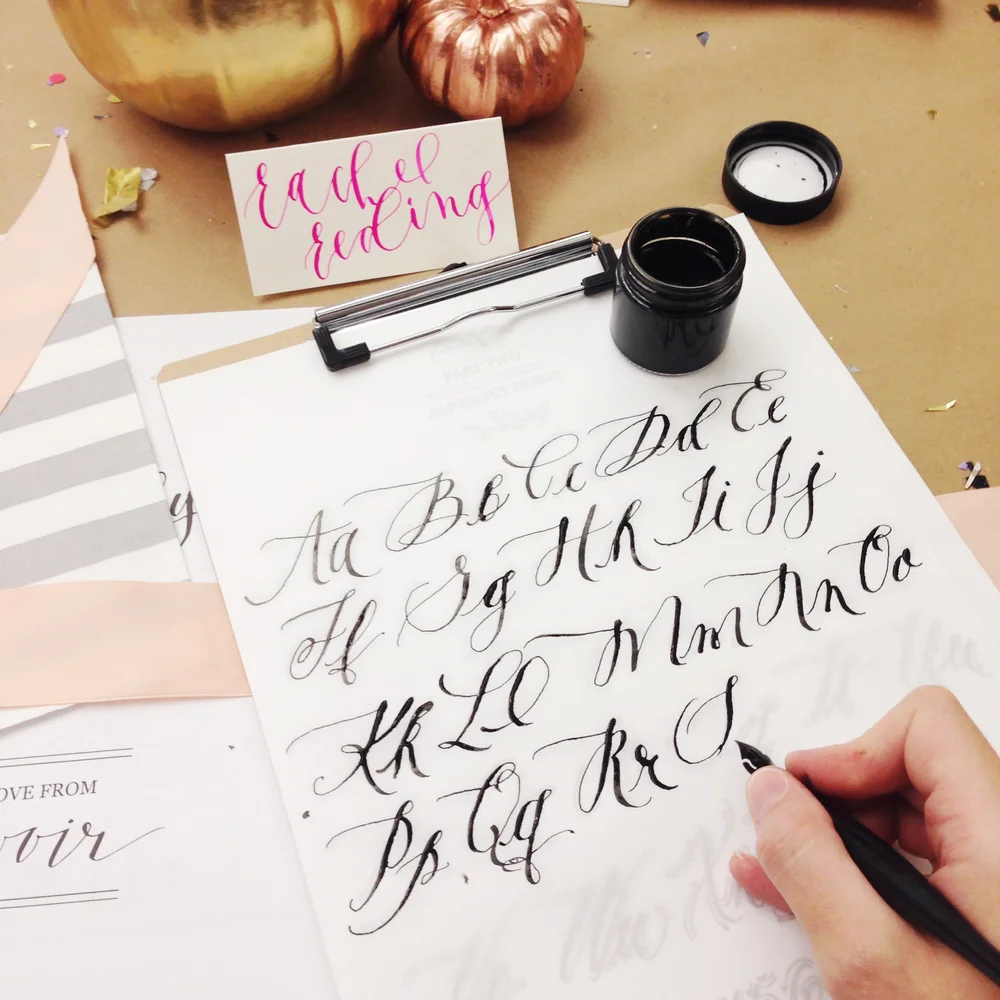 Rachel
Reding
Aa Bb Cc Dd Ee
Ff Gg Hh Ii Jj
Kk Ll Mm Nn Oo
Pp Qq Rr S
OVE FROM